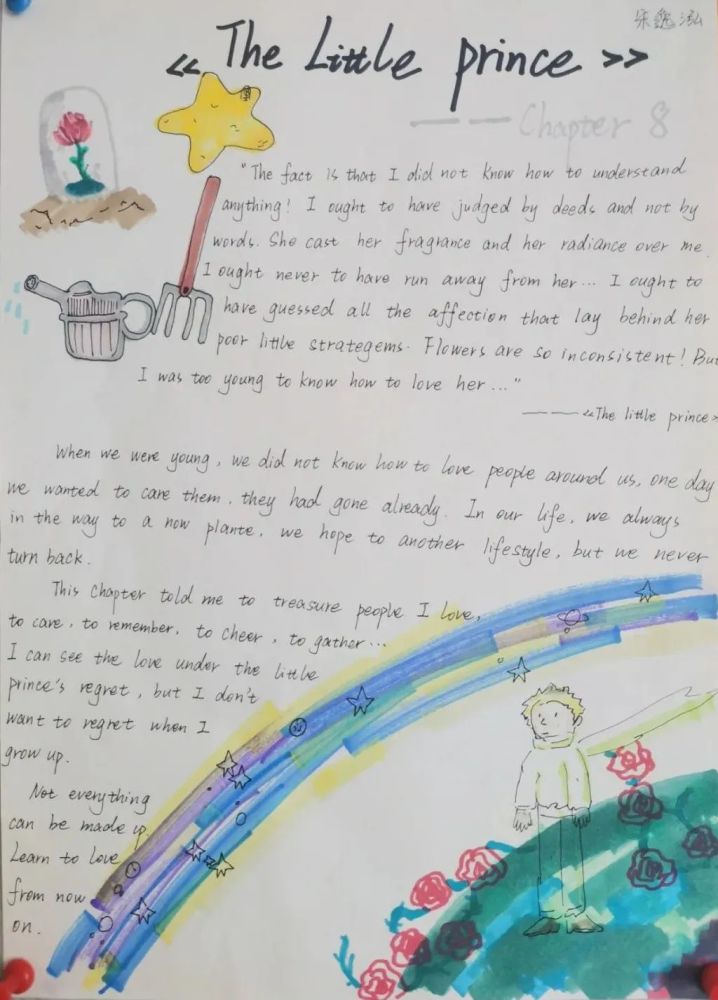 宋魏泓
《 The Little prince 》
——Chapter 8
"The fact is that I did not know how to understand
anything! I ought to have judged by deeds and not by
words. She cast her fragrance and her radiance over me.
I ought never to have run away from her... I ought to
have guessed all the affection that lay behind her
poor little strategems. Flowers are so inconsistent! But
I was too young to know how to love her..."
——《The little prince》
When we were young, we did not know how to love people around us, one day
we wanted to care them, they had gone already. In our life, we always
in the way to a now plante, we hope to another lifestyle, but we never
turn back.
This Chapter told me to treasure people I love,
to care, to remember, to cheer, to gather...
I can see the love under the little
prince's regret, but I don't
want to regret when I
grow up.
Not everything
can be made up.
Learn to love
from now
on.